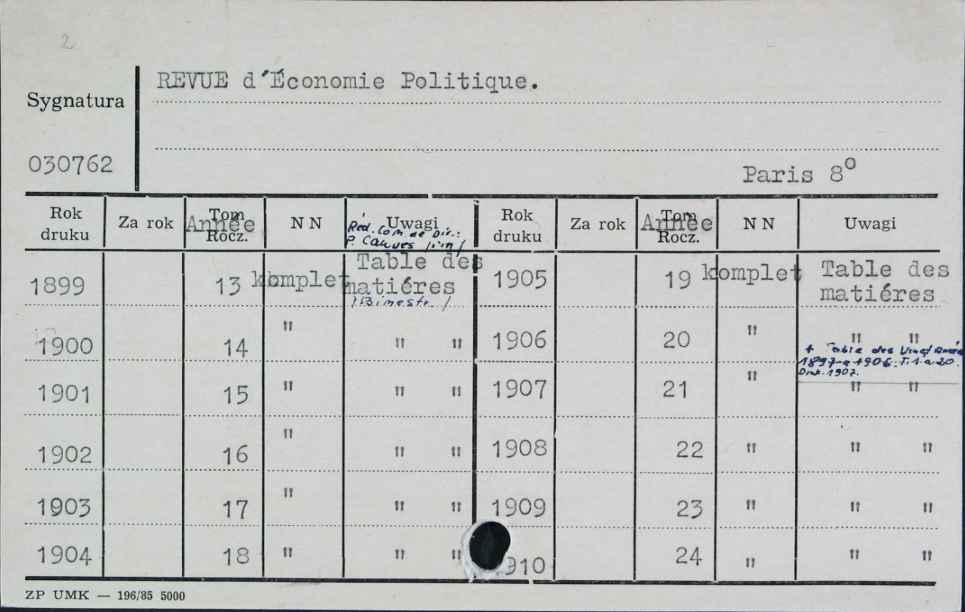 2
REVUE d'Économie Politique.
Sygnatura
030762
Paris 8°
Rok druku Za rok Tom Rocz. Année N N Uwagi Rok druku Za rok Tom Rocz. Année N N Uwagi
Réd. Com. de Dir.:
P. Cauwès
1899 13 komplet Table des matiéres 1905 19 komplet Table des matiéres
/Bimestr./
1900 14 " " " 1906 20 " " "
+ Table des Vingt Année
1897 a 1906. T. 1 a 20.
1907.
1901 15 " " " 1907 21 " " "
1902 16 " " " 1908 22 " " "
1903 17 " " " 1909 23 " " "
1904 18 " " " 910 24 " " "
ZP UMK — 196/85 5000